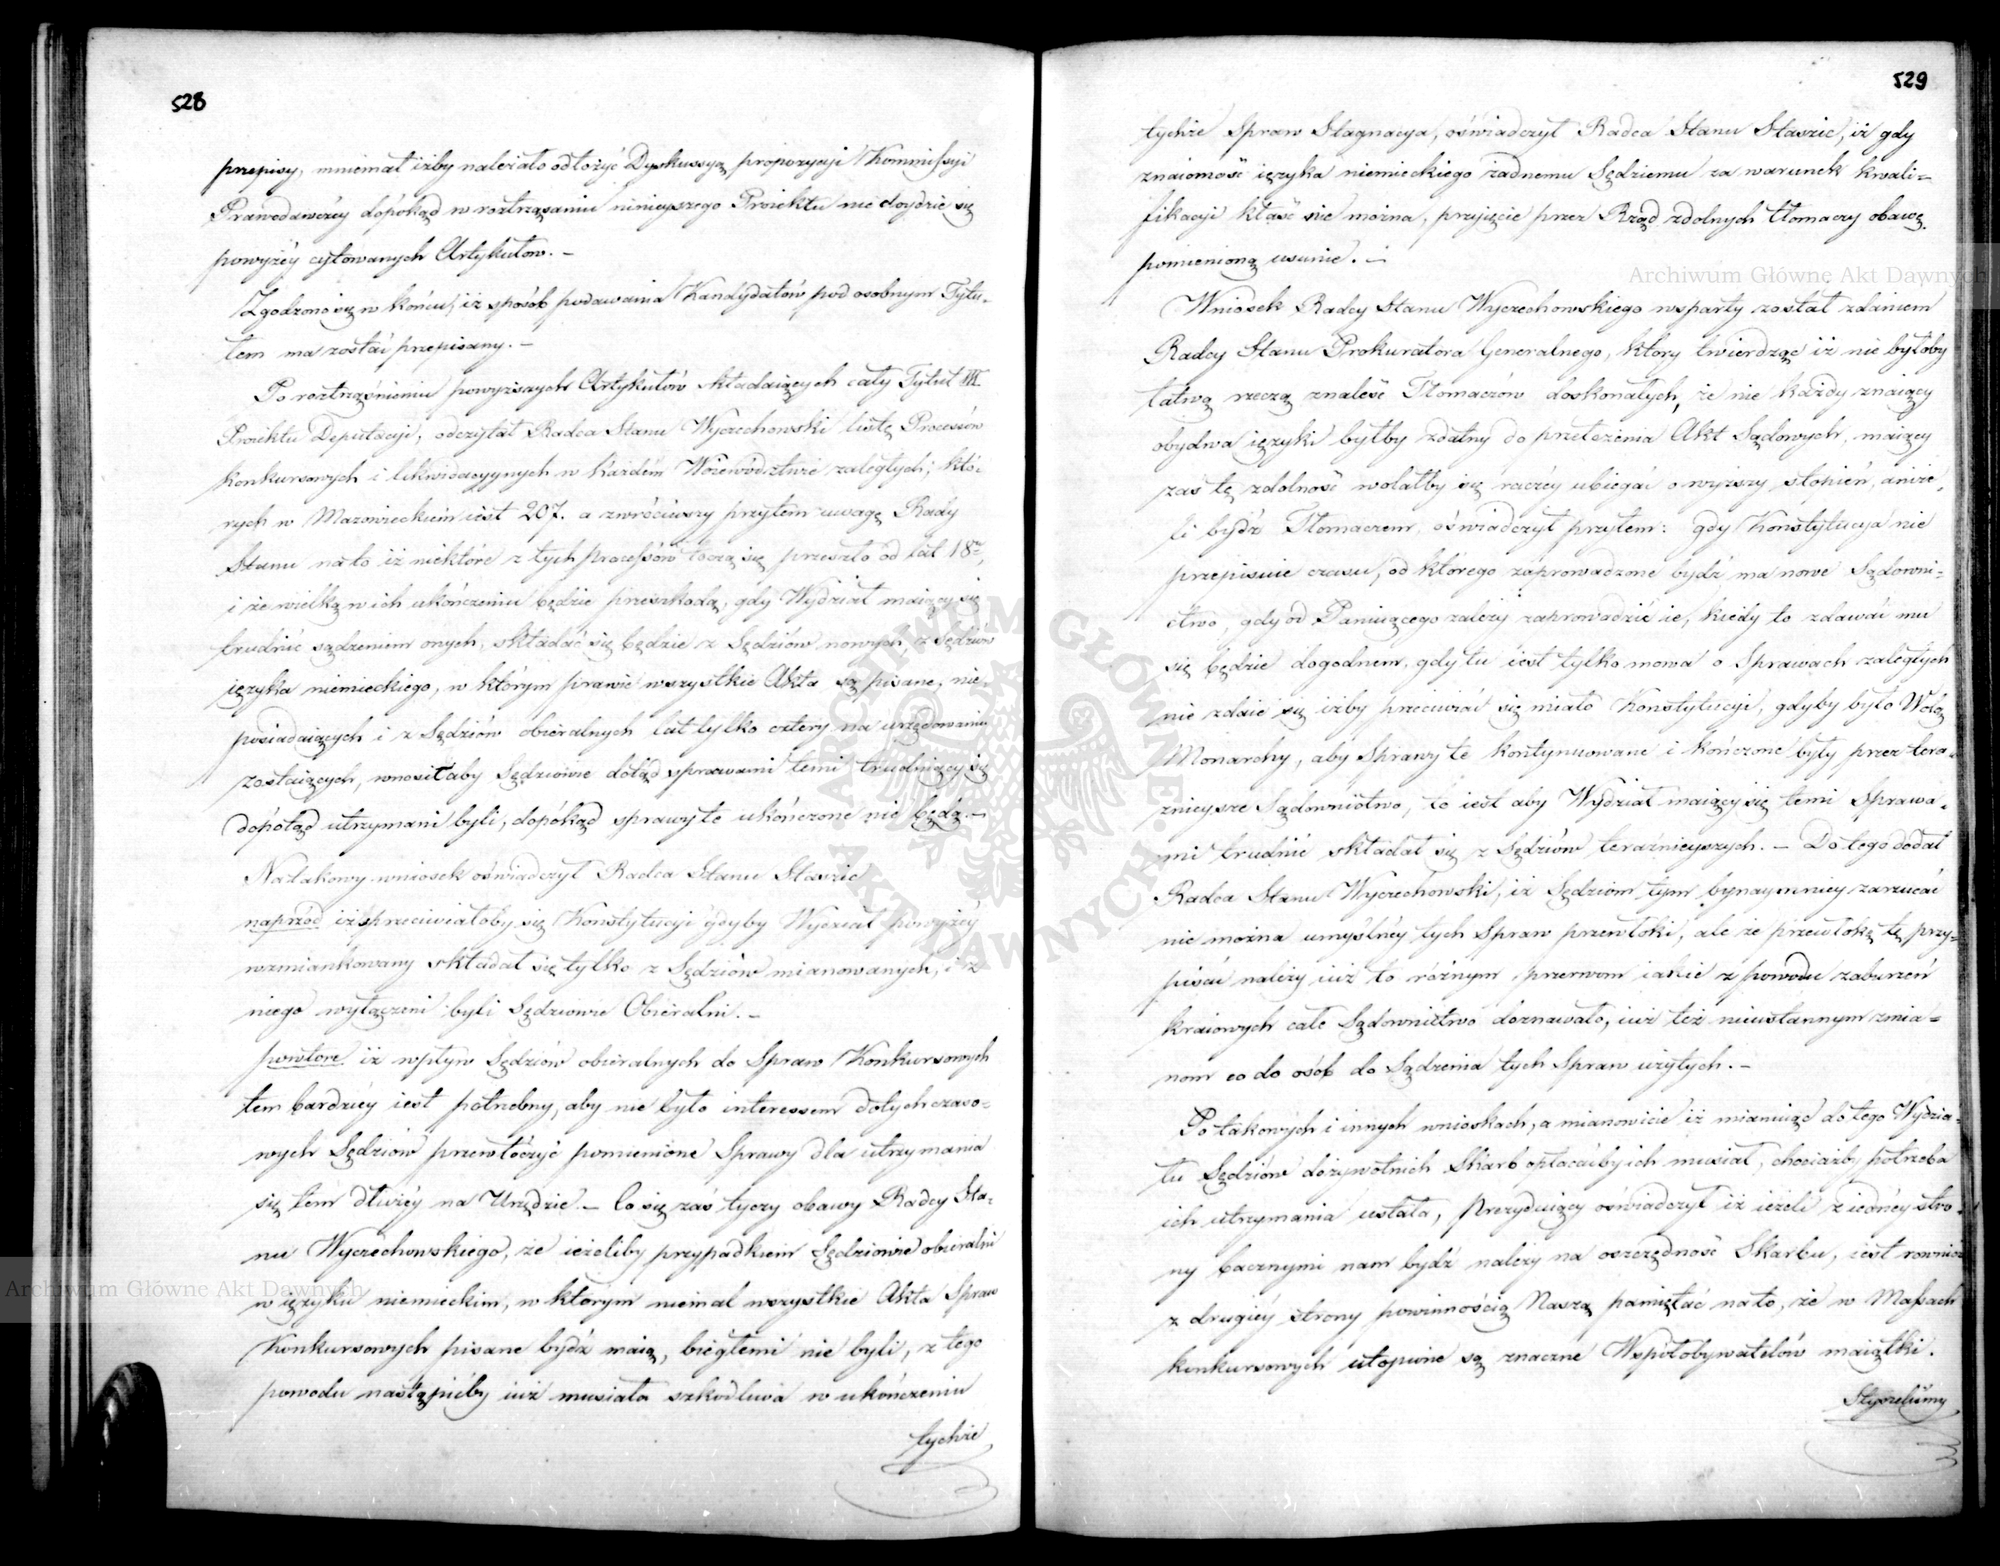 528
przepisy, mniemał iżby należało odłożyć Dyskussyą propozycyi Kommissyi
Prawodawczéy dopókąd w roztrząsaniu niniejszego Proiektu nie doydzie się
powyżéy cytowanych Artykułów. –
Zgodzono się w końcu, iż sposób podawania Kandydatów pod osobnym Tytu-
łem ma zostać przepisany. –
Po roztrząśnieniu powyższych Artykułów składaiących cały Tytuł III
Proiektu Deputacyi, odczytał Radca Stanu Wyczechowski listę Processów
konkursowych i likwidacyynych w każdém Województwie zaległych; któ-
rych w Mazowieckiém iest 207. a zwróciwszy przytém uwagę Rady
Stanu na to iż niektóre z tych processów toczą się przeszło od lat 18tu,
i że wielką w ich ukończeniu będzie przeszkodą, gdy Wydział maiący się
trudnić sądzeniem onych, składać się będzie z Sędziów nowych, z Sędziów
ięzyka niemieckiego, w którym prawie wszystkie Akta są pisane, nie
posiadaiących i z Sędziów obieralnych lat tylko cztery na urzędowaniu
zostaiących, wnosił aby Sędziowie dotąd sprawami temi trudniący się
dopótąd utrzymani byli, dopókąd sprawy te ukończone nie będą. –
Na takowy wniosek oświadczył Radca Stanu Staszic
naprzód iż sprzeciwiałoby się Konstytucyi gdyby Wydział powyżéy
wzmiankowany składał się tylko z Sędziów mianowanych, i z
niego wyłączeni byli Sędziowie Obieralni. –
powtóre iż wpływ Sędziów obieralnych do Spraw Konkursowych
tem bardziéy iest potrzebny, aby nie było interessem dotychczaso-
wych Sędziów przewłóczyć pomienione Sprawy dla utrzymania
się tém dłużéy na Urzędzie. – Co się zaś tyczy obawy Radcy Sta-
nu Wyczechowskiego, że ieżeliby przypadkiem Sędziowie obieralni
w ięzyku niemieckim, w którym niemal wszystkie Akta Spraw
Konkursowych pisane bydź maią, biegłemi nie byli, z tego
powodu nastąpićby iuż musiała szkodliwa w ukończeniu
tychże
529
tychże Spraw Stagnacya, oświadczył Radca Stanu Staszic, iż gdy
znaiomość ięzyka niemieckiego żadnemu Sędziemu za warunek kwali-
fikacyi kłaść nie można, przyięcie przez Rząd zdolnych tłomaczy obawę
pomienioną usunie. –
Wniosek Radcy Stanu Wyczechowskiego wsparty został zdaniem
Radcy Stanu Prokuratora Generalnego, który twierdząc iż nie byłoby
łatwą rzeczą znaleść Tłomaczów doskonałych, że nie każdy znaiący
obydwa ięzyki byłby zdatny do przełożenia Akt Sądowych, maiący
zaś tę zdolność wolałby się raczéy ubiegać o wyższy stopień, aniże-
li bydź Tłomaczem, oświadczył przytem: gdy Konstytucya nie
przepisuie czasu, od którego zaprowadzone bydź ma nowe Sądowni-
ctwo, gdy od Panuiącego zależy zaprowadzić ie, kiedy to zdawać mu
się będzie dogodnem, gdy tu iest tylko mowa o Sprawach zaległych
nie zdaie się iżby przeciwić się miało Konstytucyi, gdyby było Wolą
Monarchy, aby Sprawy te kontynuowane i kończone były przez tera-
znieysze Sądownictwo, to iest aby Wydział maiący się temi Sprawa-
mi trudnić składał się z Sędziów teraźnieyszych. – Do tego dodał
Radca Stanu Wyczechowski, iż Sędziom tym bynaymniey zarzucać
nie można umyślnéy tych Spraw przewłoki, ale że przewłokę tę przy-
pisać należy iuż to różnym przerwom iakie z powodu zaburzeń
kraiowych całe Sądownictwo doznawało, iuż też nieustannym zmia-
nom co do osób do Sądzenia tych Spraw użytych. –
Po takowych i innych wnioskach, a mianowicie iż mianuiąc do tego Wydzia-
łu Sędziów dożywotnich Skarb opłacaćby ich musiał, chociażby potrzeba
ich utrzymania ustała, Prezyduiący oświadczył iż ieżeli z iednéy stro-
ny bacznymi nam bydź należy na oszczędność Skarbu, iest również
z drugiéy strony powinnością Naszą pamiętać na to, że w Massach
konkursowych utopione są znaczne Współobywatelów maiątki.
Słyszeliśmy
Archiwum Główne Akt Dawnych
Archiwum Główne Akt Dawnych
ARCHIWUM GŁÓWNE AKT DAWNYCH